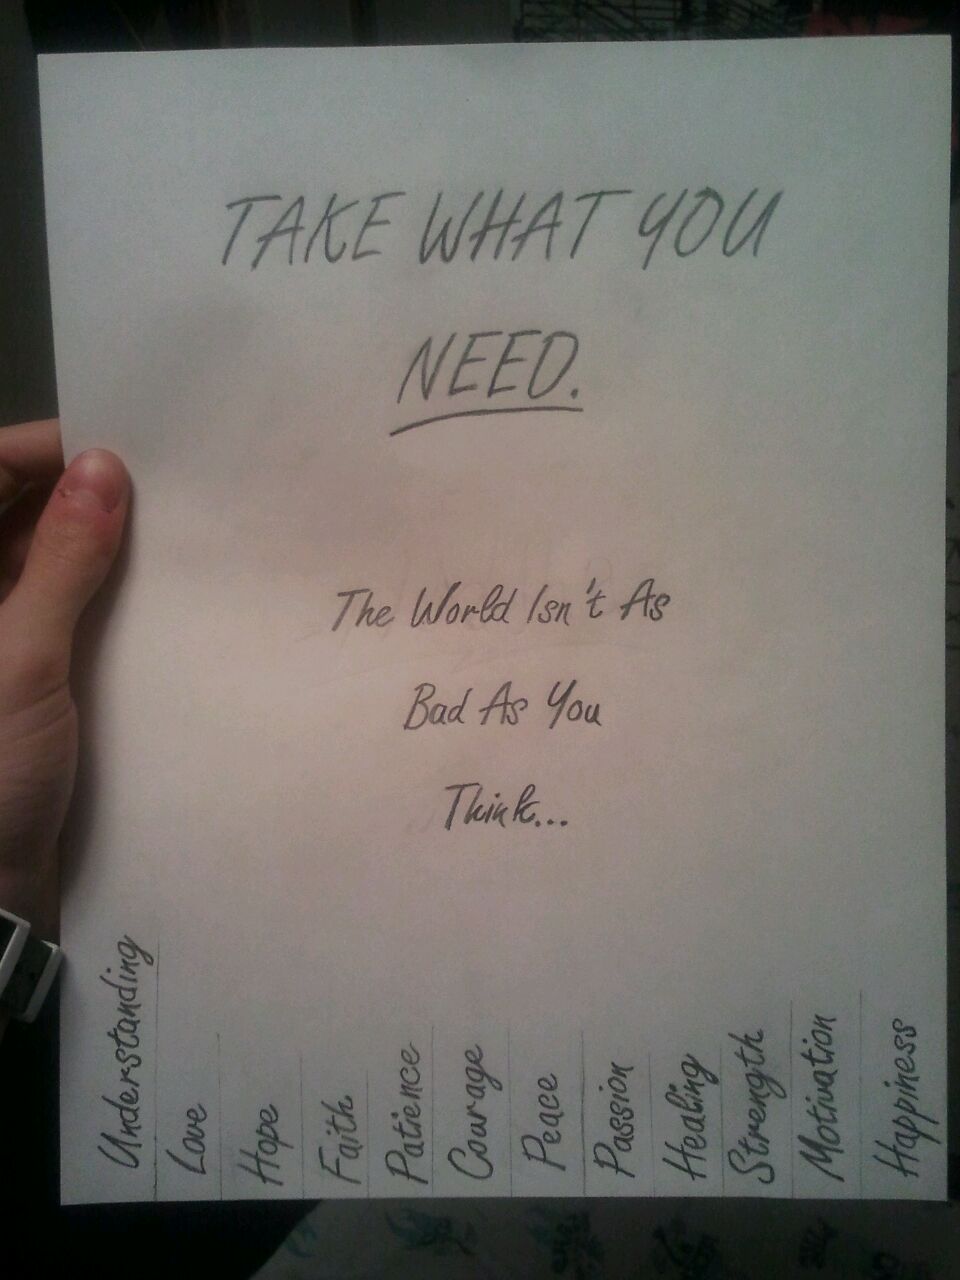 TAKE WHAT YOU
NEED.
The World Isn't As
Bad As You
Think...
Understanding
Love
Hope
Faith
Patience
Courage
Peace
Passion
Healing
Strength
Motivation
Happiness